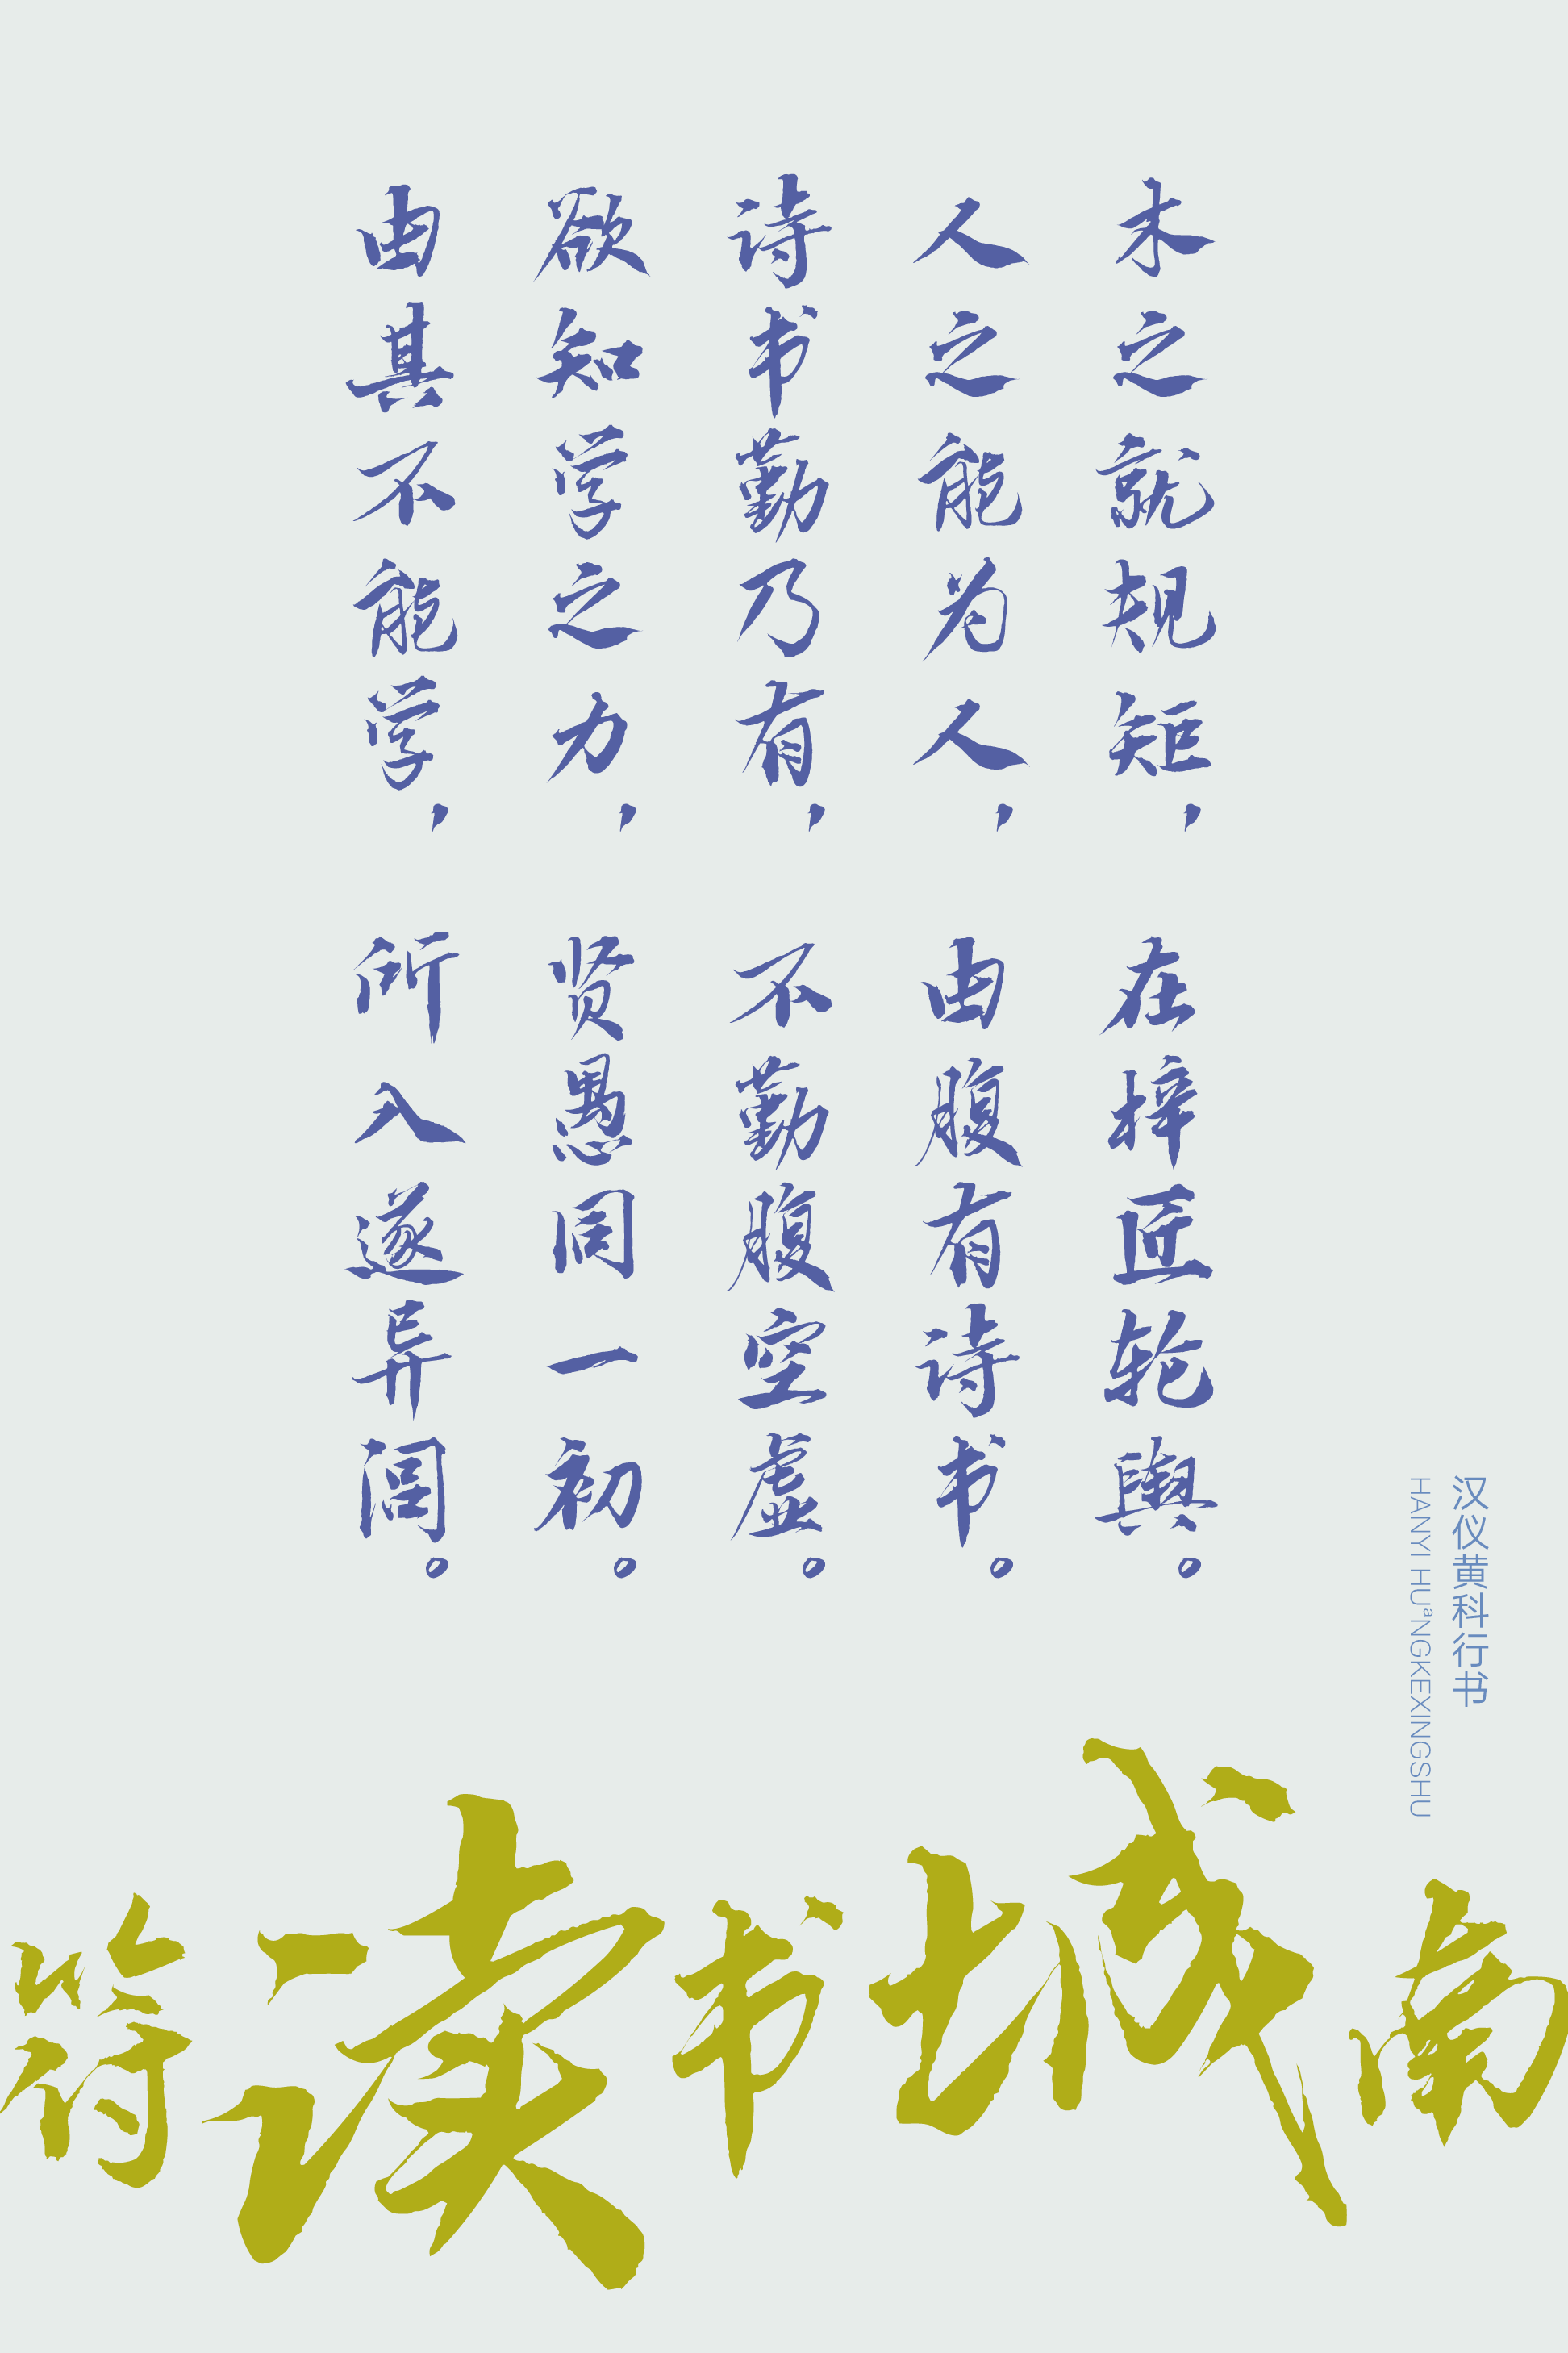 木之就规矩，在梓匠轮舆。
人之能为人，由腹有诗书。
诗书勤乃有，不勤腹空虚。
欲知学之力，贤愚同一初。
由其不能学，所入遂异闾。
汉仪黄科行书
HANYI HUaNGKEXINGSHU
符读书城南